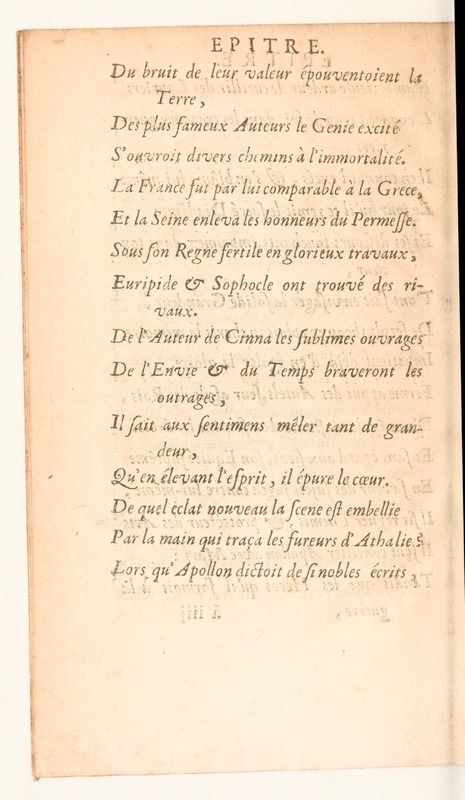 EPITRE.
Du bruit de leur valeur épouventoient la
Terre,
Des plus fameux Auteurs le Genie excité
S'ouvroit divers chemins à l'immortalité.
La France fut par lui comparable à la Grece,
Et la Seine enleva les honneurs du Permesse.
Sous son Regne fertile en glorieux travaux,
Euripide & Sophocle ont trouvé des ri-
vaux.
De l'Auteur de Cinna les sublimes ouvrages
De l'Envie & du Temps braveront les
outrages,
Il sait aux sentimens mêler tant de gran-
deur,
Qu'en élevant l'esprit, il épure le cœur.
De quel éclat nouveau la scene est embellie
Par la main qui traça les fureurs d'Athalie?
Lors qu'Apollon dictoit de si nobles écrits,